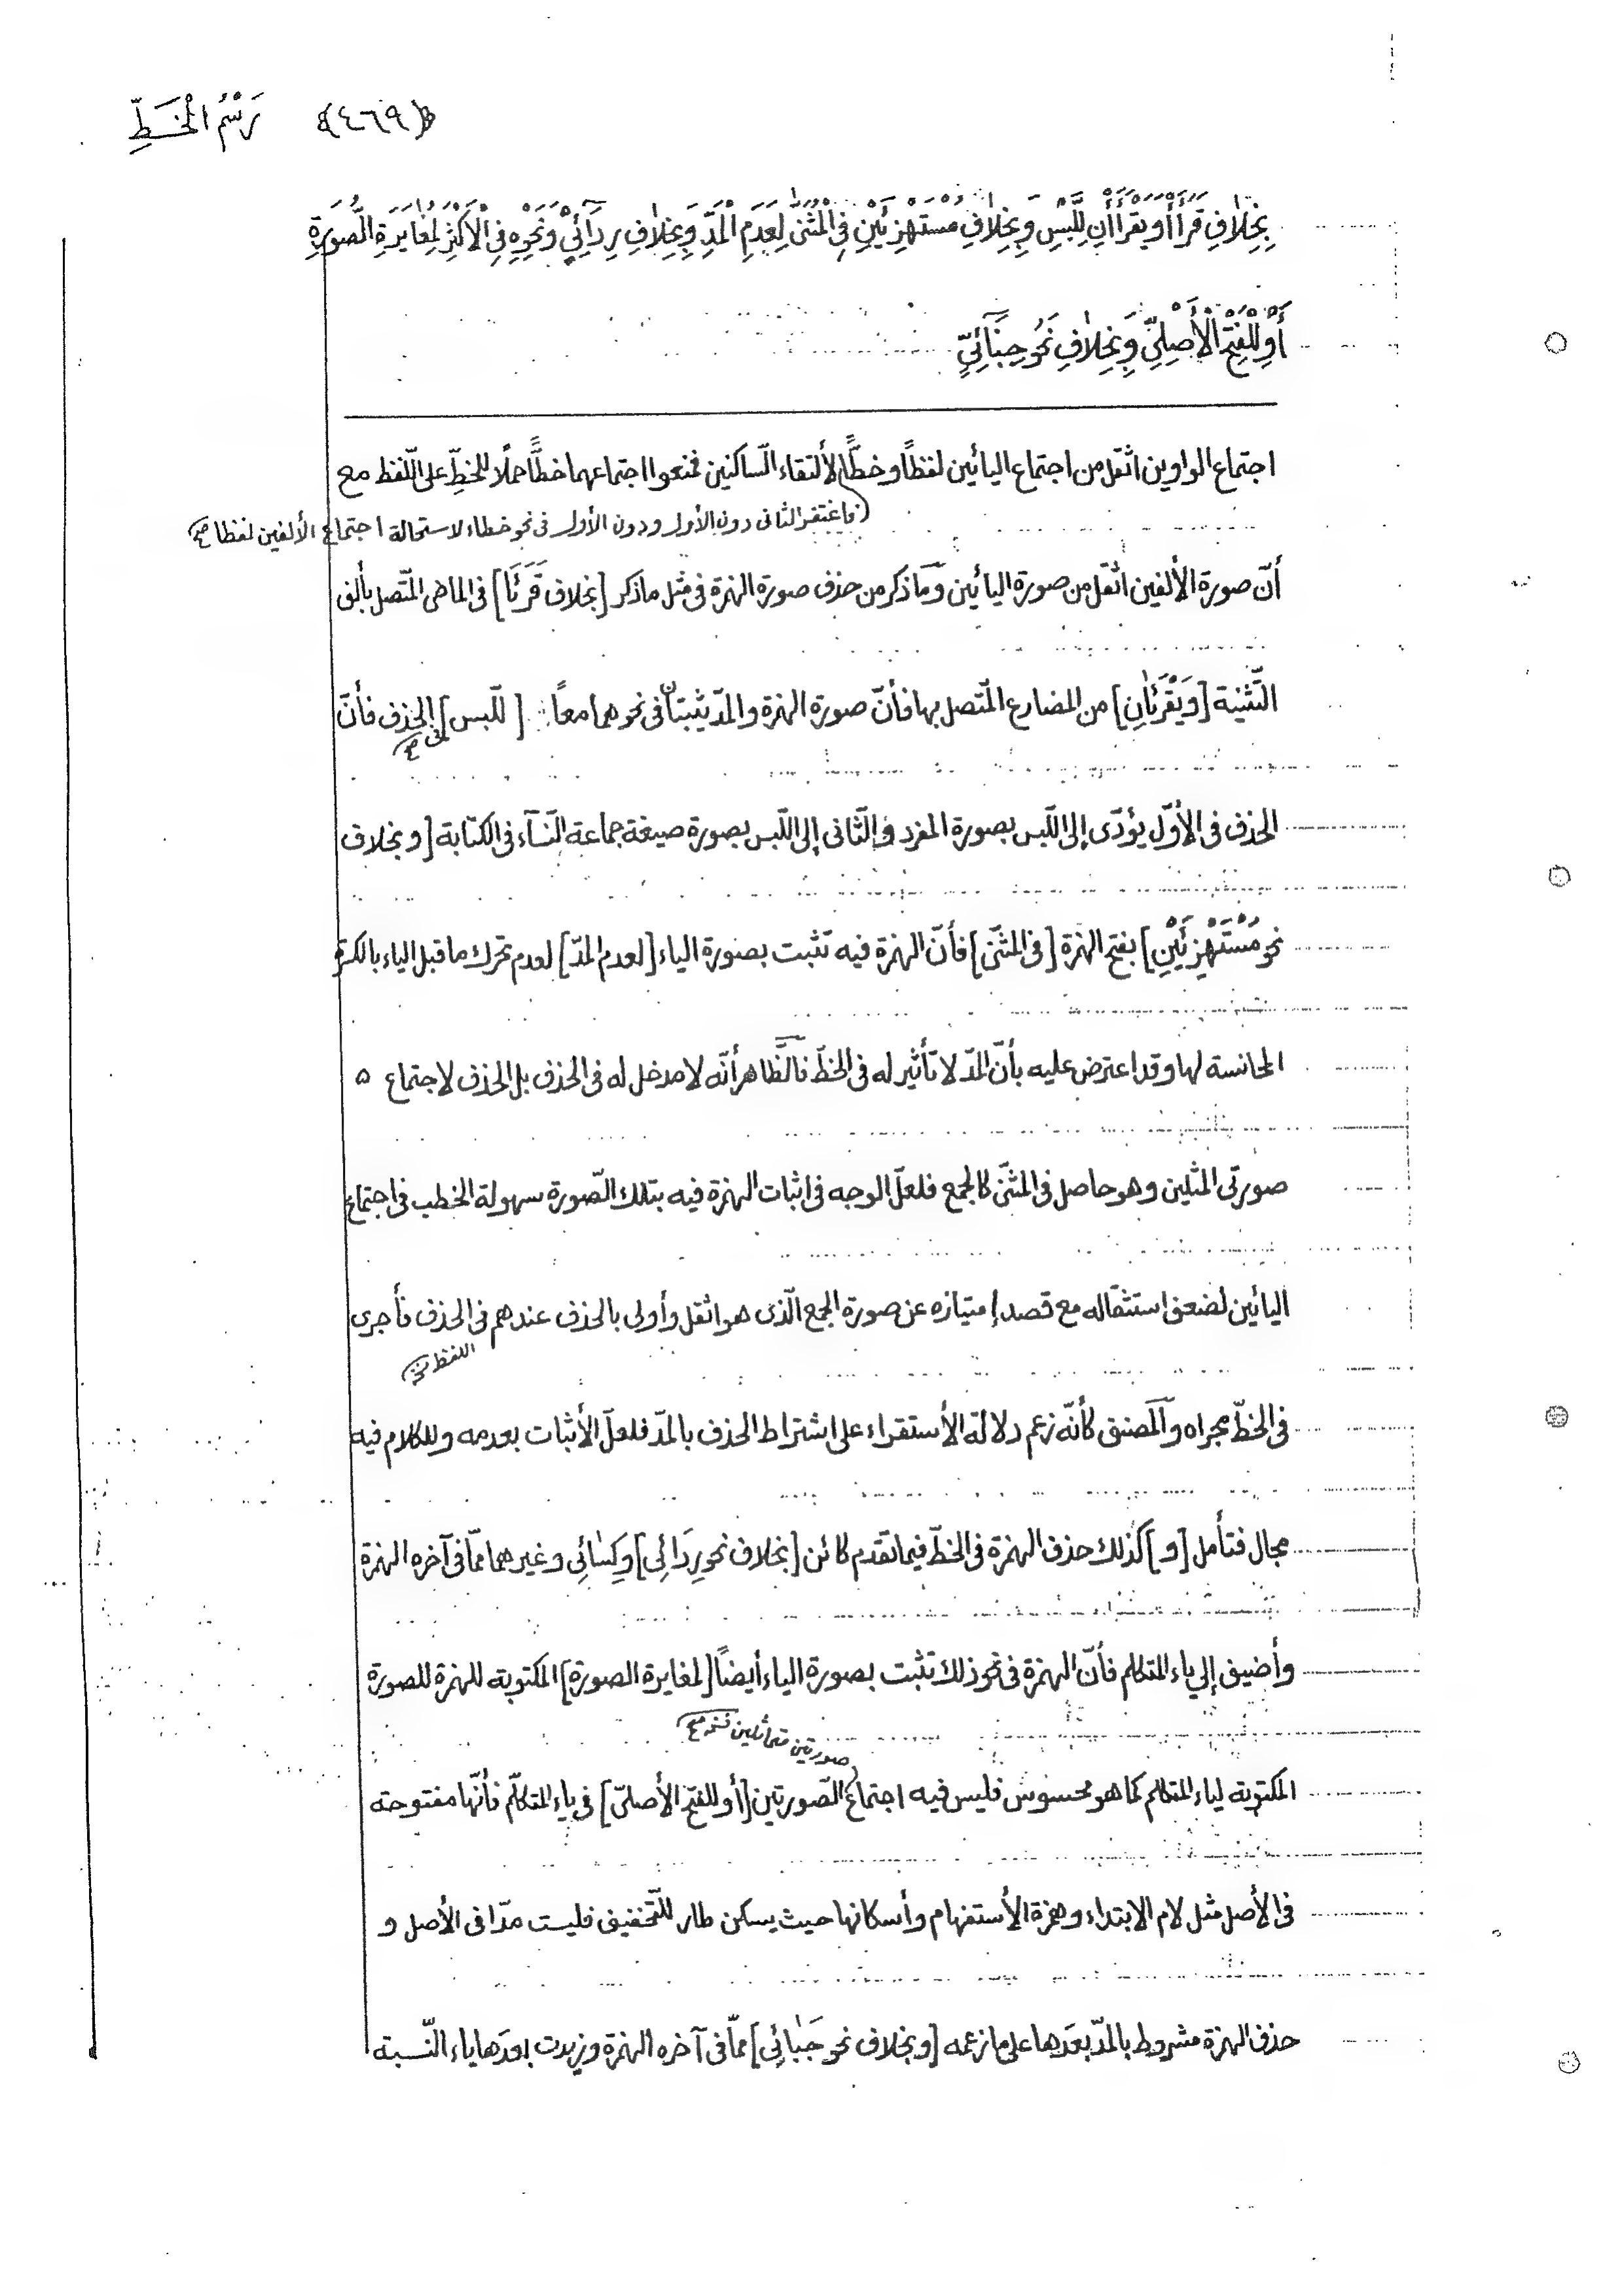 رَسْمُ الْخَطِّ ﴿٤٦٩﴾
بِخِلَافِ قَرَأَا وَيَقْرَأَانِ لِلَّبْسِ وَبِخِلَافِ مُسْتَهْزِئَيْنِ فِي الْمُثَنَّى لِعَدَمِ الْمَدِّ وَبِخِلَافِ رِدَائِيْ وَنَحْوِهِ فِي الْأَكْثَرِ لِمُغَايَرَةِ الصُّورَةِ
أَوْ لِلْفَتْحِ الْأَصْلِيِّ وَبِخِلَافِ نَحْوِ حِنَّائِيٍّ
اجتماع الواوين اثقل من اجتماع اليائين لفظاً وخطّاً لألتقاء السّاكنين فمنعوا اجتماعهما خطّاً حملًا للخطِّ على اللّفظ مع
واغتفر الثانى دون الأول ودون الأول فى نحو خطاء لاستحالة اجتماع الألفين لفظا صح
أنّ صورة الألفين اثقل من صورة اليائين وما ذكر من حذف صورة الهمزة فى مثل ما ذكر [بخلاف قَرَئَا] فى الماضى المتّصل بألف
التّثنية [وَيَقْرَئَانِ] من المضارع المتّصل بها فأنّ صورة الهمزة والمدّ يثبتان فى نحوهما معاً [للّبس] الحذف فأنّ
فى صح
الحذف فى الأوّل يؤدّى إلى اللّبس بصورة المفرد والثّانى إلى اللّبس بصورة صيغة جماعة النّسآء فى الكتابة [وبخلاف
نحو مُسْتَهْزِئَيْنِ] بفتح الهمزة [فى المثنّى] فأنّ الهمزة فيه تثبت بصورة الياء [لعدم المدّ] لعدم تحرك ما قبل الياء بالكسرة
المجانسة لها وقد اعترض عليه بأنّ المدّ لا تأثير له فى الخطّ فالظّاهر أنّه لا مدخل له فى الحذف بل الحذف لاجتماع ٥
صورتى المثلين وهو حاصل فى المثنّى كالجمع فلعلّ الوجه فى اثبات الهمزة فيه بتلك الصّورة سهولة الخطب فى اجتماع
اليائين لضعف استثقاله مع قصد إمتيازه عن صورة الجمع الّذى هو اثقل وأولى بالحذف عندهم فى الحذف فأجرى
اللفظ نخ
فى الخطّ مجراه والمصنف كأنّه زعم دلالة الأستقراء على اشتراط الحذف بالمدّ فلعلّ الأثبات بعدمه وللكلام فيه
مجال فتأمل [و] كذلك حذف الهمزة فى الخطّ فيما تقدم كائن [بخلاف نحو رِدَائِى] وكِسَائِى وغيرهما ممّا فى آخره الهمزة
وأضيف إلى ياء المتكلم فأنّ الهمزة فى نحو ذلك تثبت بصورة الياء أيضاً [لمغايرة الصورة] المكتوبة للهمزة للصورة
صورتين متماثلين نسخه صح
المكتوبة لياء المتكلم كما هو محسوس فليس فيه اجتماع الصّورتين [أو للفتح الأصلىّ] فى ياء المتكلّم فأنّها مفتوحة
فى الأصل مثل لام الابتداء وهمزة الأستفهام وأسكانها حيث يسكن طار للتّخفيف فليست مدّا فى الأصل و
حذف الهمزة مشروط بالمدّ بعدَها على ما زعمه [وبخلاف نحو حَنَّائِى] ممّا فى آخره الهمزة وزيدت بعدَها ياء النّسبة